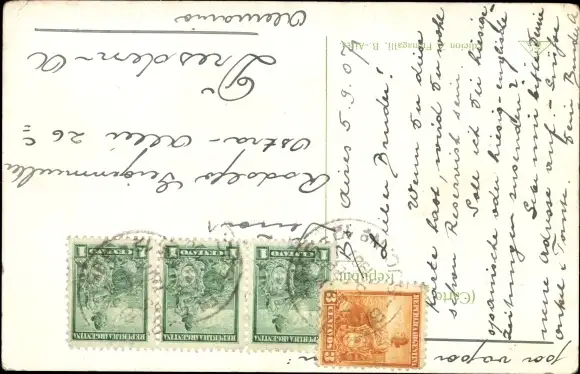 por vapor
(Carto
República
B. Aires 5.9.07
Lieber Bruder!
Wenn Du diese
Karte hast, wirst Du wohl
schon Reservist sein.
Soll ich Dir hiesige
spanische oder hiesig-englische
Zeitungen zusenden?
Sende mir bitte Deine
neue Adresse auf. Grüße
Onkel & Tante.
Dein Bruder
Señor
Rodolfo
Ostra-Allee 26
Dresden-A
Alemania
Fumagalli, B. Aires
REPUBLICA ARGENTINA
1 CENTAVO 1
REPUBLICA ARGENTINA
1 CENTAVO 1
REPUBLICA ARGENTINA
1 CENTAVO 1
REPUBLICA ARGENTINA
3 CENTAVOS 3